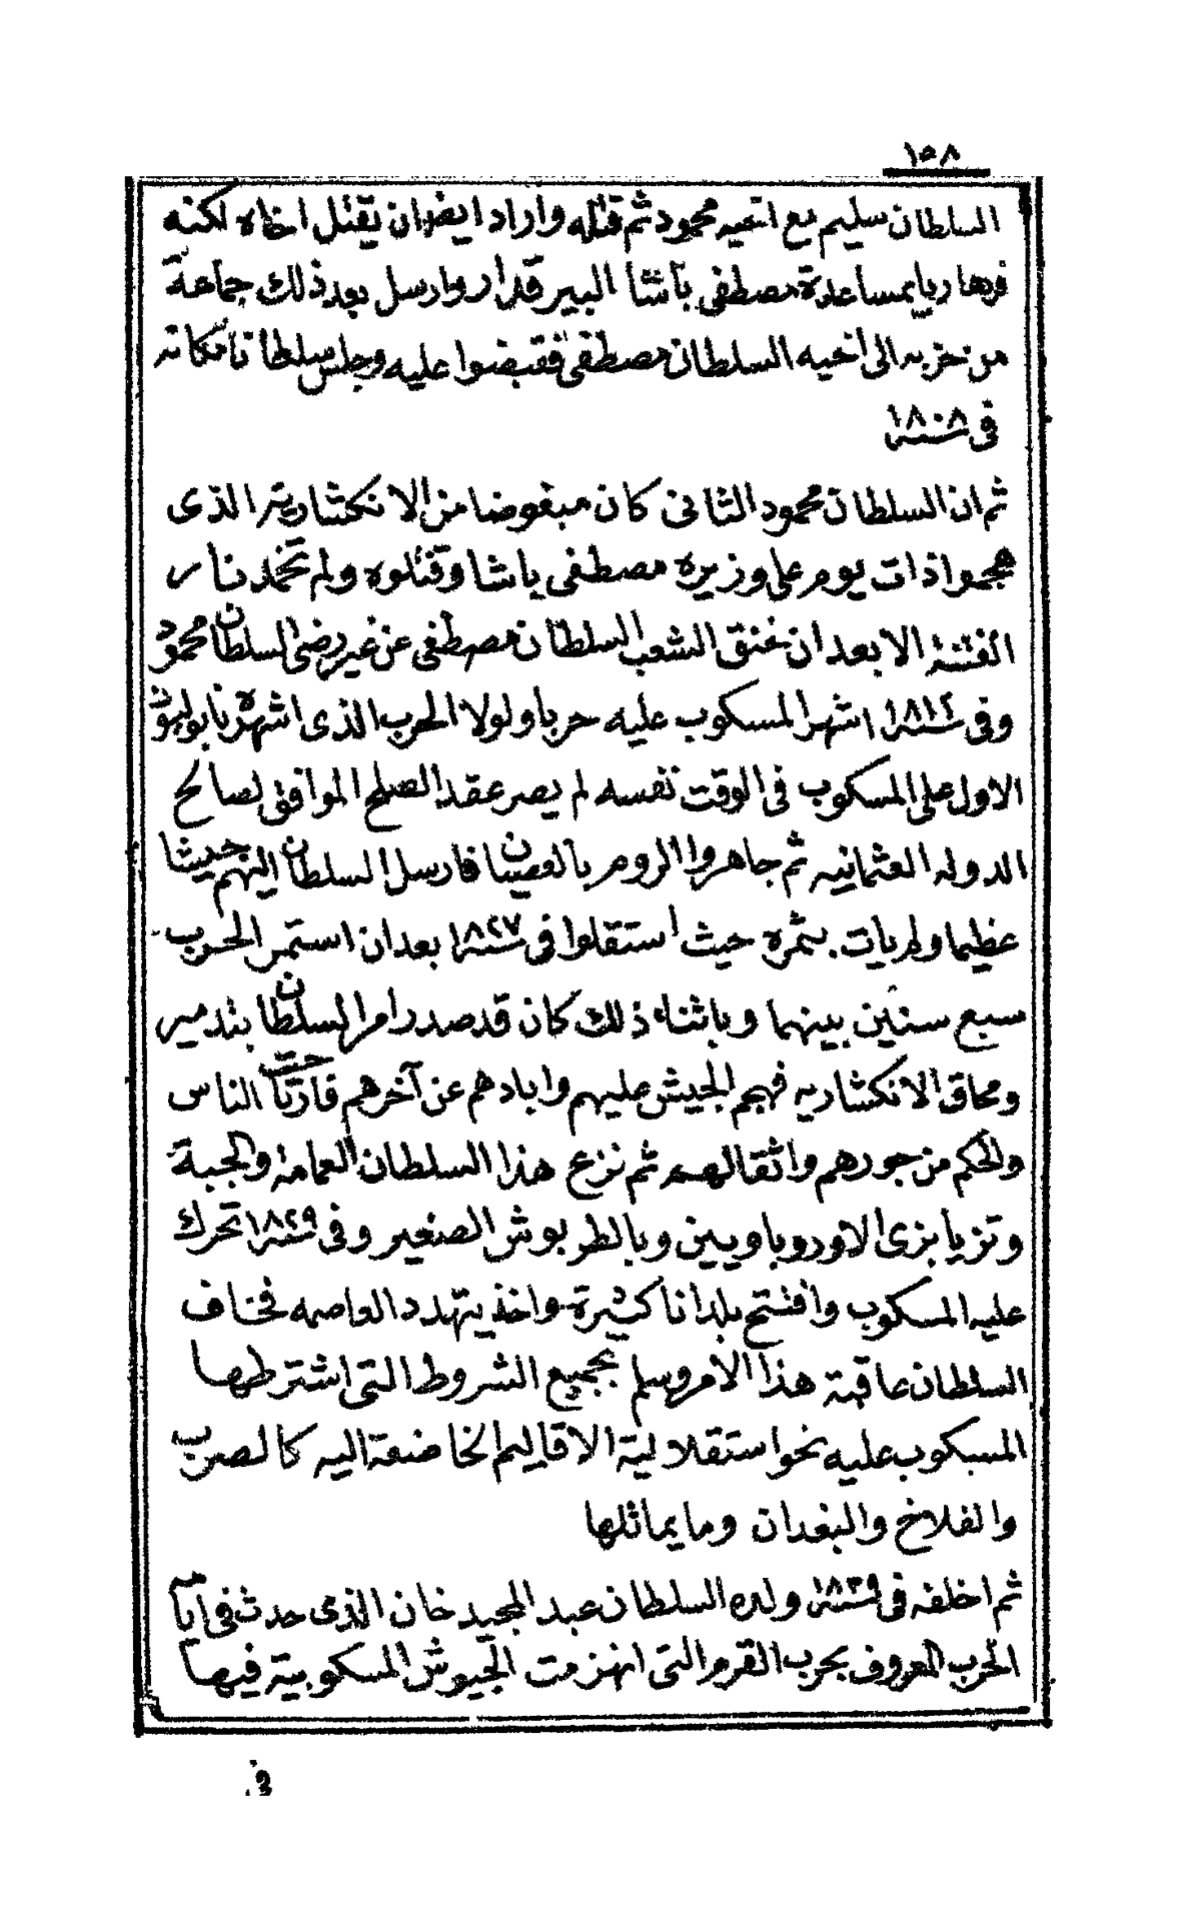 ١٥٨
السلطان سليم مع اخيه محمود ثم قتله واراد ايضا ان يقتل اخاه لكنه
فر هاربا بمساعدة مصطفى باشا البيرقدار وارسل بعد ذلك جماعة
من حزبه الى اخيه السلطان مصطفى فقبضوا عليه وجلس سلطانا مكانه
فى سنة ١٨٠٨
ثم ان السلطان محمود الثانى كان مبغوضا من الانكشارية الذى
هجموا ذات يوم على وزيره مصطفى باشا وقتلوه ولم تخمد نار
الفتنة الا بعد ان خنق الشعب السلطان مصطفى عن غير رضى السلطان محمود
وفى سنة ١٨١٢ اشهر المسكوب عليه حربا ولولا الحرب الذى اشهره نابوليون
الاول على المسكوب فى الوقت نفسه لم يصر عقد الصلح الموافق لصالح
الدوله العثمانيه ثم جاهروا الروم بالعصيان فارسل السلطان اليهم جيشا
عظيما ولم يات بثمره حيث استقلوا فى سنة ١٨٢٧ بعد ان استمر الحرب
سبع سنين بينهما وباثناء ذلك كان قد صدر امر السلطان بتدمير
ومحاق الانكشاريه فهجم الجيش عليهم وابادهم عن آخرهم فارتاحت الناس
والحكم من جورهم واثقالهم ثم نزع هذا السلطان العمامة والجبة
وتزيا بزى الاوروباويين وبالطربوش الصغير وفى سنة ١٨٢٩ تحرك
عليه المسكوب وافتتح بلدانا كثيرة واخذ يتهدد العاصمه فخاف
السلطان عاقبة هذا الامر وسلم بجميع الشروط التى اشترطها
المسكوب عليه نحو استقلالية الاقاليم الخاضعة اليه كالصرب
والفلاخ والبغدان وما يماثلها
ثم اخلفه فى سنة ١٨٣٩ ولده السلطان عبد المجيد خان الذى حدث فى ايامه
الحرب المعروف بحرب القرم التى انهزمت الجيوش المسكوبية فيها
فى